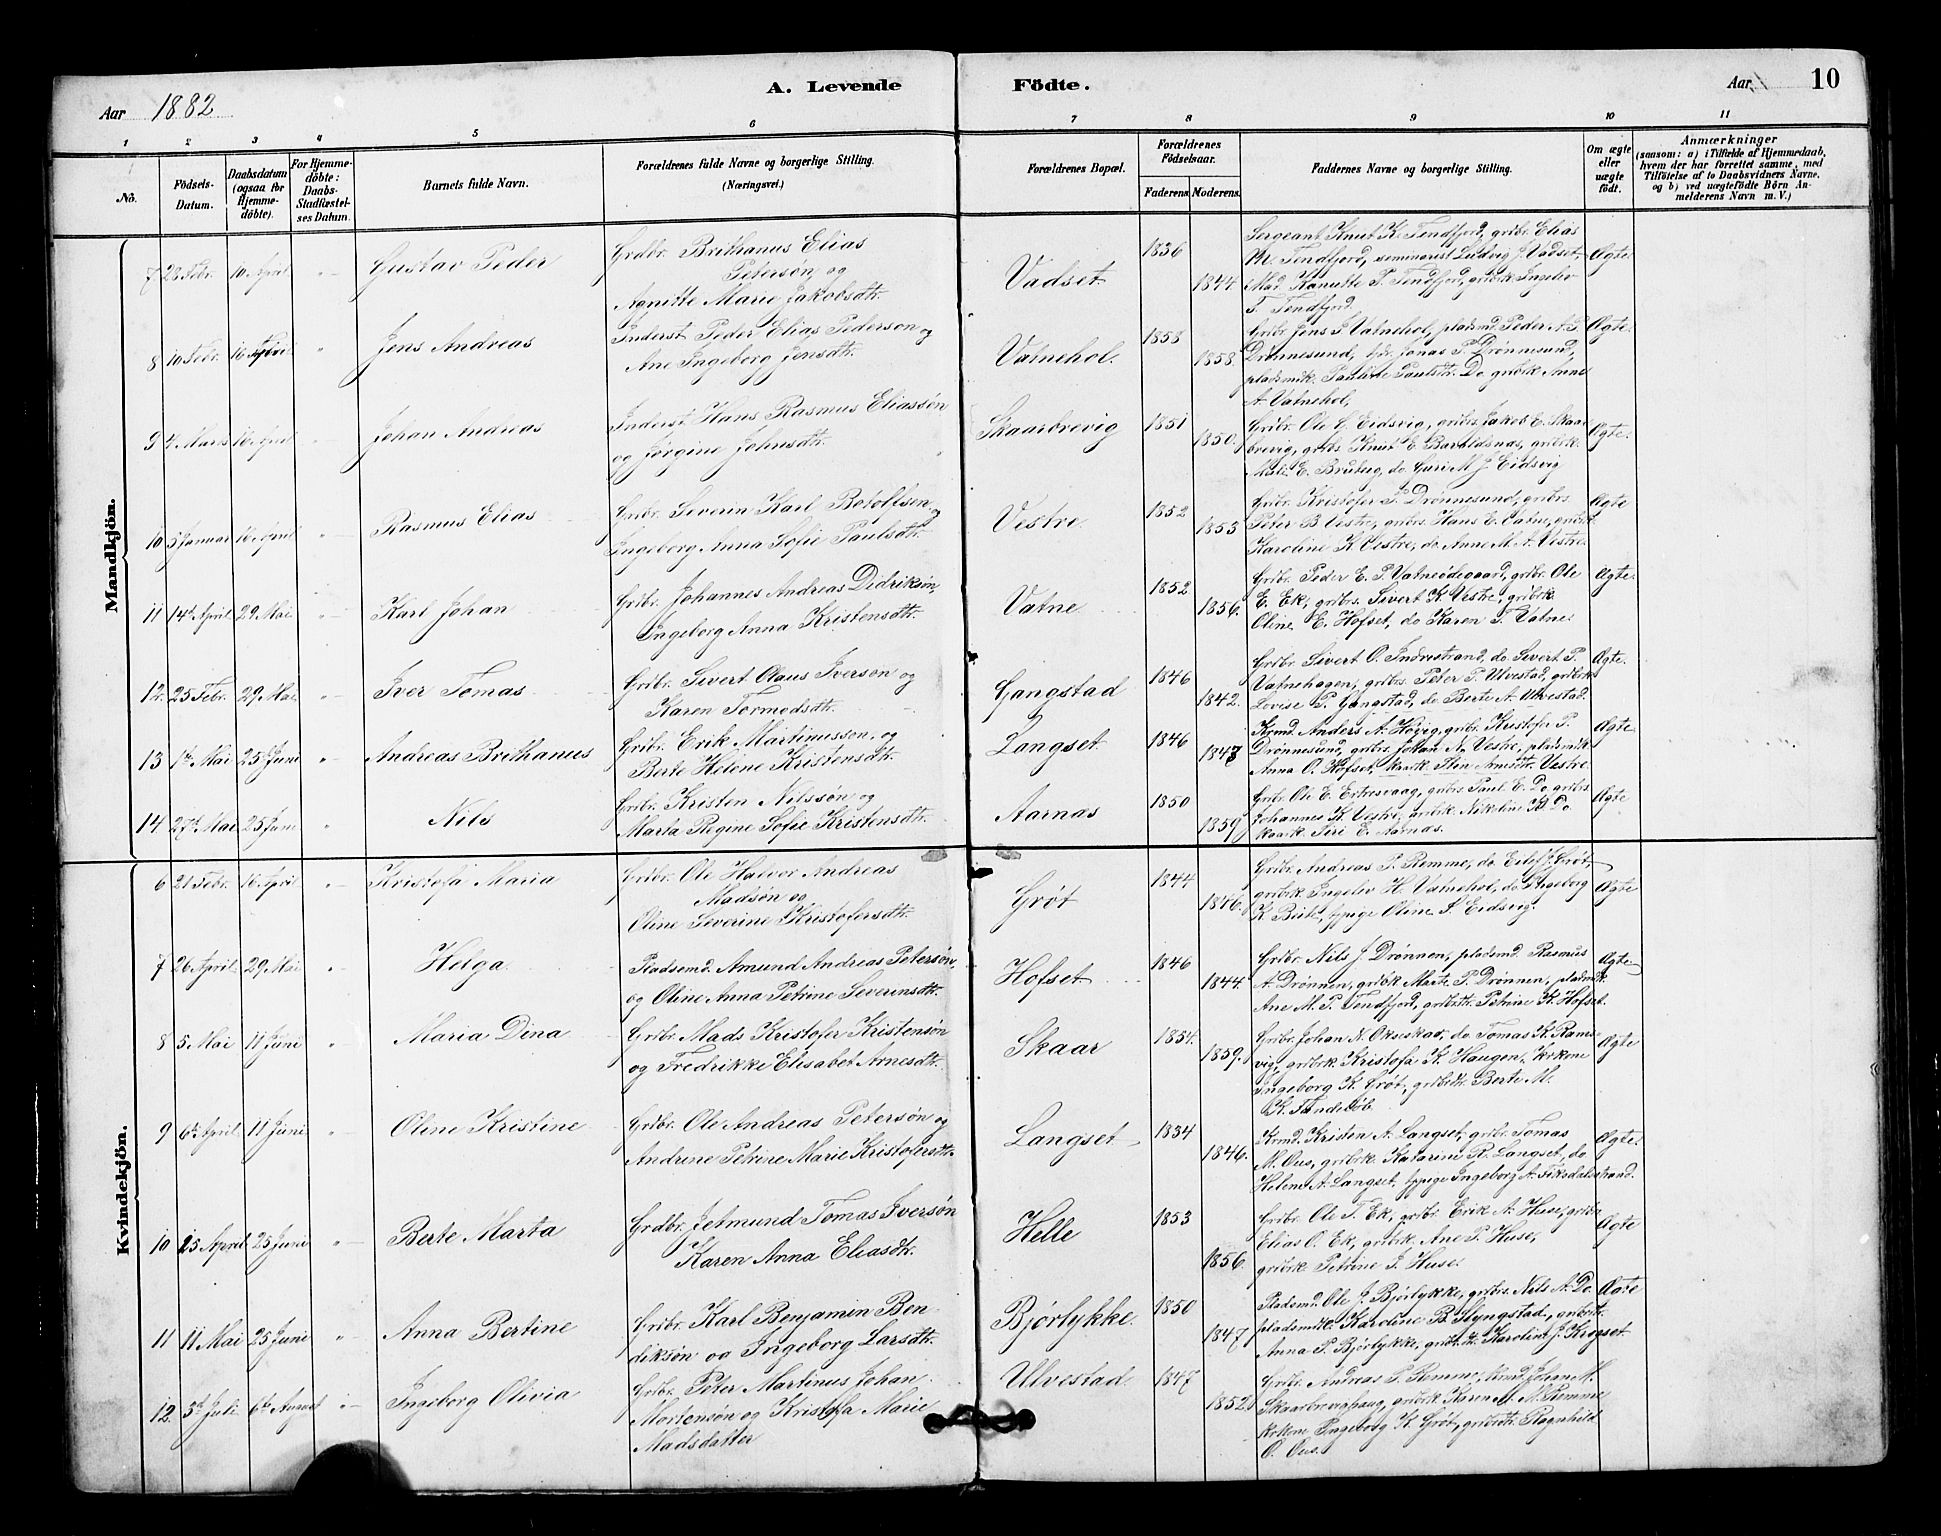 Aar 1882
A. Levende Födte.
Aar 10
1 2 3 4 5 6 7 8 9 10 11
No.
Födsels-Datum.
Daabsdatum (ogsaa for Hjemmedöbte).
For Hjemmedöbte: Daabs-Stadfæstelses Datum.
Barnets fulde Navn.
Forældrenes fulde Navne og borgerlige Stilling.
(Næringsvei.)
Forældrenes Bopæl.
Forældrenes Födselsaar.
Faderens Moderens.
Faddernes Navne og borgerlige Stilling.
Om ægte eller uægte födt.
Anmærkninger
(saasom: a) i Tilfælde af Hjemmedaab, hvem der har forrettet samme, med Tilföielse af to Daabsvidners Navne, og b) ved uægtefödte Börn Anmelderens Navn m. V.)
Mandkjön.
7 28 Febr. 10 April " Gustav Peder
Grdbr. Brithanus Elias
Petersøn og
Agnitte Marie Jakobsdtr.
Vadset 1836 1844
Sergeant Knut K. Tendfjord, grdbr. Elias
M. Tendfjord, seminarist Ludvig J. Vadset,
Mad. Kanutte P. Tendfjord, grdbrk. Ingeliv
T. Tendfjord.
Ægte
8 10 Febr. 16 April " Jens Andreas
Inderst Peder Elias Pederson og
Ane Ingeborg Jensdtr.
Vatnehol. 1858 1858.
Grdbr. Jens S. Vatnehol, pladsmd. Peder A. P.
Drønnesund, Gdr. Jonas P. Drønnesund,
pladsmdk. Pauline Paulsdtr. Do, grdbrk. Anne
A. Vatnehol,
Ægte
9 4 Marts 16 April " Johan Andreas
Inderst Hans Rasmus Eliassøn
og Jørgine Johnsdtr.
Skaarbrevig 1851 1850.
Grdbr. Ole G. Eidsvig, grdbrs. Jakob E. Skaar
brevig, grdbs Knut E. Baraldsnas, grdbrk.
Mali E. Bruberg, do Guri M. J. Eidsvig
Ægte.
10 5 Januar 16 April " Rasmus Elias
Grdbr. Severin Karl Botolfsen og
Ingeborg Anna Sofie Paulsdtr.
Vestre. 1852 1853
Grdbr. Kristofer P. Drønnesund, grdbrs
Peter B. Vestre, grdbrs. Hans E. Vatne, grdbrk.
Karoline K. Vestre, do. Anne M. A. Vestre.
Ægte
11 14de April 29 Mai " Karl Johan
Grdbr. Johannes Andreas Didriksøn,
Ingeborg Anna Kristensdtr.
Vatne 1852 1856.
Grdbr. Peder E. P. Vatneødegaard, grdbr. Ole
E. Ek, grdbrs. Sivert K. Vestre, grdbrk
Oline E. Hofset, do Karen T. Vatne.
Ægte.
12. 25 Febr. 29 Mai " Iver Tomas
Grdbr. Sivert Olaus Iverson og
Karen Tormodsdtr.
Gangstad 1846 1842.
Grdbr. Sivert O. Indrestrand, do. Sivert P.
Vatnehagen, grdbrs. Peter P. Ulvestad, grdbrk.
Lovise P. Gangstad, do Berte A. Ulvestad.
Ægte.
13 1de Mai 25 Juni " Andreas Brithanus
Grdbr. Erik Martinussøn. og
Berte Helene Kristensdtr.
Langset 1846 1848
Krmd. Anders A. Høvig, grdbr. Kristofer P.
Drønnesund, grdbrs. Johan A. Vestre, pladsmdk.
Anna O. Hofset, kaark. Stin Arnsdtr. Vestre.
Ægte
14 27de Mai 25 Juni " Nils
Grdbr. Kristen Nilssøn og
Marta Regine Sofie Kristensdtr.
Aarnas 1850 1859
Grdbr. Ole E. Ertresvaag, grdbrs Paul. E. Do, grdbrs
Johannes K. Vestre, grdbrk. Nikoline K. Do
kaark. Siri E. Aarnas.
Ægte
Kvindekjön.
6 21 Febr. 16 April " Kristofa Maria
Grdbr. Ole Halvor Andreas
Madsøn og
Oline Severine Kristofersdtr.
Grøt 1844 1846.
Grdbr. Andreas P. Remme, do. Eilef J. Grøt
grdbrk. Ingeliv H. Vatnehol, do. Ingeborg
K. Beite, Gpige Oline S. Eidsvig.
Ægte
7 26 April 29 Mai " Helga
Pladsmd. Amund Andreas Petersøn,
og Oline Anna Petrine Severinsdtr.
Hofset 1846 1844.
Grdbr. Nils J. Drønnen, pladsmd. Rasmus
A. Drønnen, grdbrk. Marte P. Drønnen, pladsmdk.
Ane M. P. Tendfjord, grdbrdtr. Petrine K. Hofset.
Ægte
8 5 Mai 11 Juni " Maria Dina
Grdbr. Mads Kristofer Kristensøn
og Fredrikke Elisabet Arnesdtr.
Skaar 1854. 1859.
Grdbr. Johan N. Okseskad, do. Tomas K. Rams
vig, grdbrk. Kristofa K. Haugen, krkone
Ingeborg K. Grøt, grdbrdtr. Berte M.
K. Tandebøb
Ægte
9 6de April 11 Juni " Oline Kristine
Grdbr. Ole Andreas Petersøn og
Andrine Petrine Marie Kristofersdtr.
Langset 1834 1846.
Krmd. Kristen A. Langset, grdbr. Tomas
M. Ous, grdbrk. Katarine R. Langset, do
Helene A. Langset, Gpige Ingeborg A. Fiksdalsstrand.
Ægte.
10 25 April 25 Juni " Berte Marta
Grdbr. Jetmund Tomas Iversøn
Karen Anna Eliasdtr.
Helle 1853 1856.
Grdbr. Ole T. Ek, grdbr. Erik A. Huse, grdbrs
Elias O. Ek, grdbrk. Ane P. Huse,
grdbrk. Petrine J. Huse.
Ægte
11 11 Mai 25 Juni " Anna Bertine
Grdbr. Karl Benjamin Ben-
diksøn og Ingeborg Larsdtr.
Bjørlykke. 1850 1847
Pladsmd. Ole J. Bjørlykke, grdbrs. Nils A. Do.
pladsmdk. Karoline B. Slyngstad, grdbrdtr.
Anna P. Bjørlykke, grdbrdtr. Karoline J. Krogset
Ægte
12. 3de Juli 6te August " Ingeborg Olivia
Grdbr. Peter Martinus Johan
Mortensøn og Kristofa Marie
Madsdatter
Ulvestad. 1847 1852
Grdbr. Andreas P. Remme, krmd. Johan M.
Skaarbrevighaug, grdbrk. Karen M. N. Remme
krkone Ingeborg K. Grøt, grdbrdtr. Ragnhild
O. Ous.